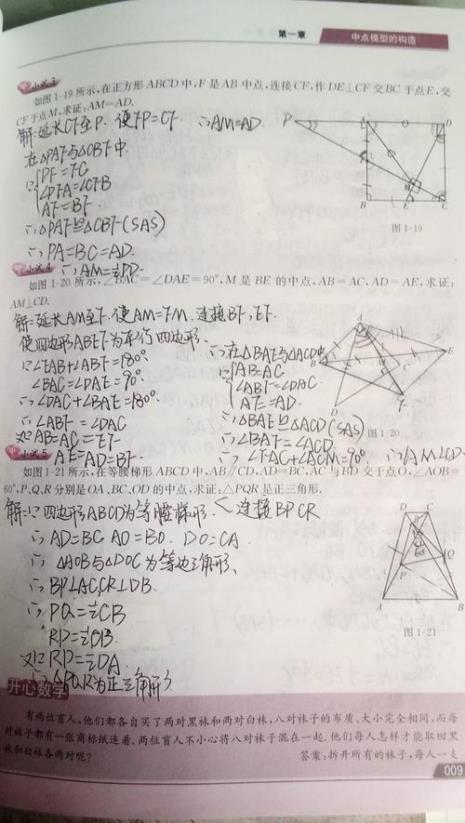 第一章 中点模型的构造
小试 3
如图 1-19 所示,在正方形 ABCD 中,F 是 AB 中点,连接 CF,作 DE⊥CF 交 BC 于点 E,交
CF 于点 M,求证:AM=AD.
解:延长CF至P.使FP=CF. ∴AM=AD.
在△PAF与△CBF中.
∵{PF=FC
∠PFA=∠CFB
AF=BF
∴△PAF≌△CBF(SAS)
∴PA=BC=AD.
∴AM=½PD.
图 1-19
小试 4
如图 1-20 所示,∠BAC=∠DAE=90°,M 是 BE 的中点,AB=AC,AD=AE,求证:
AM⊥CD.
解:延长AM至F.使AM=FM.连接BF,EF.
使四边形ABEF为平行四边形.
∵∠EAB+∠ABF=180°
∠BAC=∠DAE=90°.
∴∠DAC+∠BAE=180°
∴∠ABF=∠DAC
又∵AB=AC=EF
AE=AD=BF.
∴在△BAF与△ACD中
∵{AB=AC
∠ABF=∠DAC
AF=AD.
∴△BAF≌△ACD(SAS)
∴∠BAF=∠ACD.
∴∠FAC+∠ACM=90°. ∴AM⊥CD.
图 1-20
小试 5
如图 1-21 所示,在等腰梯形 ABCD 中,AB∥CD,AD=BC,AC 与 BD 交于点 O,∠AOB=
60°,P,Q,R 分别是 OA,BC,OD 的中点,求证:△PQR 是正三角形.
解:∵四边形ABCD为等腰梯形. 连接BP CR
∴AD=BC AO=BO. DO=CA
∴△AOB与△DOC为等边三角形.
∴BP⊥AC,CR⊥DB.
∴PQ=½CB
RD=½OB.
又∵RP=½DA.
∴△PQR为正三角形.
图 1-21
开心数学
有两位盲人,他们都各自买了两对黑袜和两对白袜,八对袜子的布质、大小完全相同,而每
对袜子都有一张商标纸连着,两位盲人不小心将八对袜子混在一起.他们每人怎样才能取回黑
袜和白袜各两对呢? 答案:拆开所有的袜子,每人一支
009